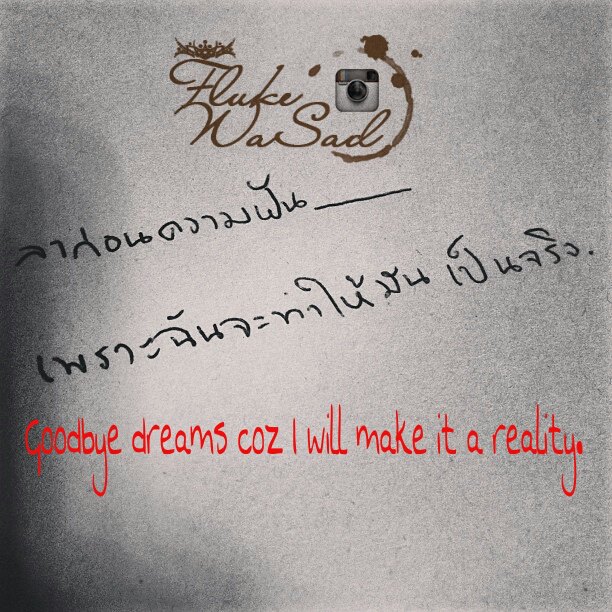 Fluke
WaSad
ลาก่อนความฝัน
เพราะฉันจะทำให้มันเป็นจริง.
Goodbye dreams coz I will make it a reality.